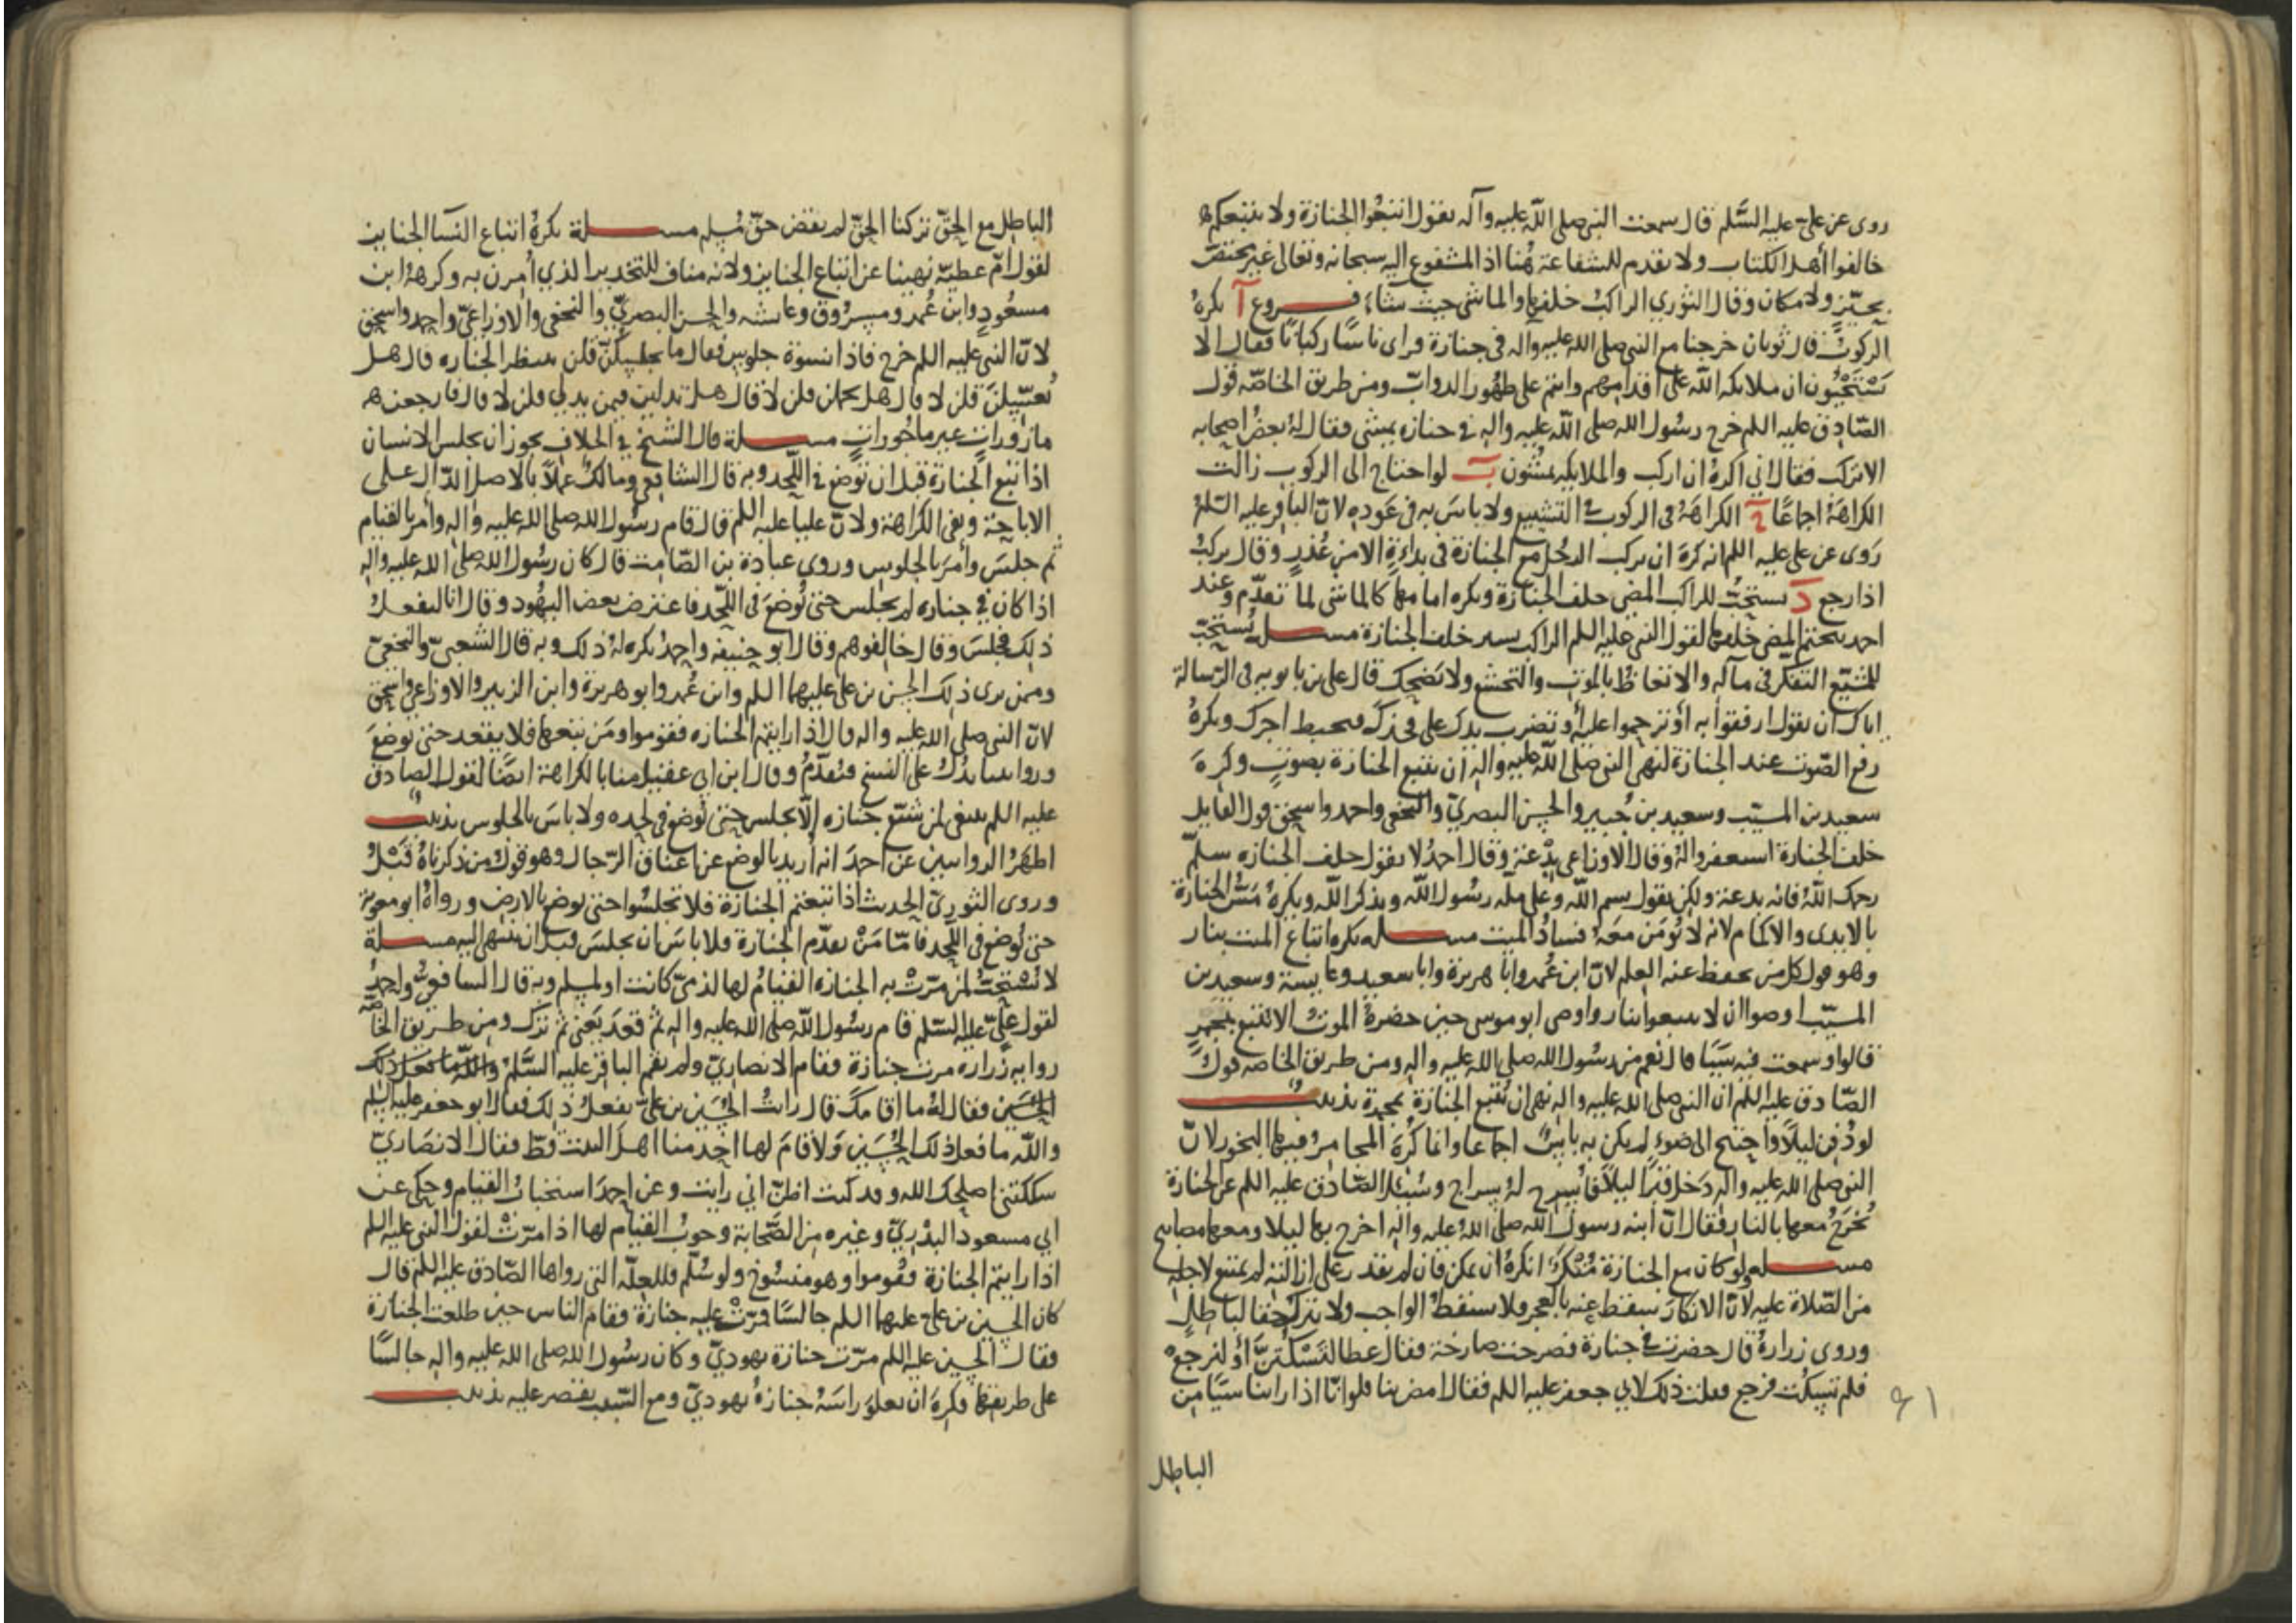 روى عن علي عليه السلم قال سمعت النبي صلى الله عليه وآله يقول اتبعوا الجنازة ولا تتبعكم
خالفوا أهل الكتاب ولا تقدم للشفاعة هنا اذ المشفوع اليه سبحانه وتعالى غير مختص
بحيز ولا مكان وقال الثوري الراكب خلفها والماشي حيث شاء فــروع آ يكره
الركوب قال ثوبان خرجنا مع النبي صلى الله عليه وآله في جنازة فراى ناسا ركبانا فقال الا
تستحيون ان ملايكه الله على اقدامهم وانتم على ظهور الدواب ومن طريق الخاصه قول
الصادق عليه اللم خرج رسول الله صلى الله عليه واله في جنازه يمشي فقال له بعض اصحابه
الا تركب فقال اني اكره ان اركب والملايكه يمشون ب لو احتاج الى الركوب زالت
الكراهة اجماعا ج الكراهة في الركوب في التشييع ولا باس به في عوده لان الباقر عليه السلم
روى عن علي عليه اللم انه كره ان يركب الرجل مع الجنازة في بداءة الا من عذر وقال يركب
اذا رجع د يستحب للراكب المضي خلف الجنازة ويكره امامها كالماشي لما تقدم وعند
احمد يستحب المضي خلفها لقول النبي عليه اللم الراكب يسير خلف الجنازة مســـله يستحب
للمشيع التفكر في مآله والاتعاظ بالموت والتخشع ولا يضحك قال علي بن بابويه في الرسالة
اياك ان تقول ارفقوا به او ترحموا عليه او تضرب يدك على فخذك فيحبط اجرك ويكره
رفع الصوت عند الجنازة لنهي النبي صلى الله عليه واله ان تتبع الجنازة بصوت وكره
سعيد بن المسيب وسعيد بن جبير والحسن البصري والنخعي واحمد واسحق قول القايل
خلف الجنازة استغفروا له وقال الاوزاعي بدعة وقال احمد لا يقول خلف الجنازه سلم
رحمك الله فانه بدعة ولكن يقول بسم الله وعلى مله رسول الله ويذكر الله ويكره مس الجنازة
بالايدي والاكمام لانه لا يؤمن معه فساد الميت مســـله يكره اتباع الميت بنار
وهو قول كل من يحفظ عنه العلم لان ابن عمر وابا هريرة وابا سعيد وعايشة وسعيد بن
المسيب اوصوا ان لا يتبعوا بنار واوصى ابو موسى حين حضرة الموت الا تتبع بمجمر
قالوا وسمعت فيه شيئا قال نعم من رسول الله صلى الله عليه واله ومن طريق الخاصه قول
الصادق عليه اللم ان النبي صلى الله عليه واله نهى ان تتبع الجنازة بمجمرة تذنيب
لو دفن ليلا واحتيج الى ضوء لم يكن به باس اجماعا وانما كره المجامر وفيها البخور لان
النبي صلى الله عليه واله دخل قبرا ليلا فاسرج له سراج وسئل الصادق عليه اللم عن الجنازة
تخرج معها بالنار فقال ان ابنه رسول الله صلى الله عليه واله اخرج بها ليلا ومعها مصابيح
مســـله ولو كان مع الجنازة منكر انكره ان تمكن فان لم يقدر على ازالته لم يمتنع لاجله
من الصلاة عليه لان الانكار سقط عنه بالعجز ولا يسقط الواجب ولا يترك حقا لباطل
وروى زرارة قال حضرت في جنازة فصرخت صارخة فقال عطا لتسكتن أو لنرجع
فلم تسكت فرجع فقلت ذلك لابي جعفر عليه اللم فقال امض بنا فلو انا اذا راينا شيئا من
٩١
الباطل
الباطل مع الحق تركنا الحق لم نقض حق مسلم مســـلة يكره اتباع النسا الجنايز
لقول ام عطية نهينا عن اتباع الجنايز ولانه مناف للتخدير الذي امرن به وكرهه ابن
مسعود وابن عمر ومسروق وعايشه والحسن البصري والنخعي والاوزاعي واحمد واسحق
لان النبي عليه اللم خرج فاذا نسوة جلوس فقال ما يجلسكن قلن ننتظر الجنازه قال هل
تغسلن قلن لا قال هل تحملن قلن لا قال هل تدلين فيمن يدلي قلن لا قال فارجعن
مازورات غير ماجورات مســـلة قال الشيخ في الخلاف يجوز ان يجلس الانسان
اذا تبع الجنازة قبل ان توضع في اللحد وبه قال الشافعي ومالك عملا بالاصل الدال على
الاباحة ونفي الكراهة ولان عليا عليه اللم قال قام رسول الله صلى الله عليه واله وأمر بالقيام
ثم جلس وأمر بالجلوس وروى عبادة بن الصامت قال كان رسول الله صلى الله عليه واله
اذا كان في جنازه لم يجلس حتى توضع في اللحد فاعترض بعض اليهود وقال انا لنفعل
ذلك فجلس وقال خالفوهم وقال ابو حنيفه واحمد يكره له ذلك وبه قال الشعبي والنخعي
وممن يرى ذلك الحسن بن علي عليهما اللم وابن عمر وابو هريرة وابن الزبير والاوزاعي واسحق
لان النبي صلى الله عليه واله قال اذا رايتم الجنازه فقوموا ومن تبعها فلا يقعد حتى توضع
وروايتنا تدل على النسخ فتقدم وقال ابن ابي عقيل منا بالكراهة ايضا لقول الصادق
عليه اللم ينبغي لمن شيع جنازه الا يجلس حتى توضع في لحده ولا باس بالجلوس تذنيب
اظهر الروايتين عن احمد انه اريد بالوضع عن اعناق الرجال وهو قول من ذكرناه قبل
وروى الثوري الحديث اذا تبعتم الجنازة فلا تجلسوا حتى توضع بالارض ورواه ابو معوية
حتى توضع في اللحد فاما من تقدم الجنازة فلا باس ان يجلس قبل ان ينتهى اليه مســـلة
لا يستحب لمن مرت به الجنازه القيام لها لذمي كانت او لمسلم وبه قال الشافعي واحمد
لقول علي عليه السلم قام رسول الله صلى الله عليه واله ثم قعد يعني ثم ترك ومن طريق الخاصه
روايه زراره مرت جنازة فقام الانصاري ولم يقم الباقر عليه السلم
فقال له ما اقامك قال رايت الحسين بن علي يفعل ذلك فقال ابو جعفر عليه السلم
والله ما فعل ذلك الحسين ولا قام لها احد منا اهل البيت قط فقال الانصاري
شككتني اصلحك الله وقد كنت اظن اني رايت وعن احمد استحباب القيام وحكى عن
ابي مسعود البدري وغيره من الصحابة وجوب القيام لها اذا مرت لقول النبي عليه اللم
اذا رايتم الجنازة فقوموا وهو منسوخ ولو سلم فللعله التي رواها الصادق عليه اللم قال
كان الحسين بن علي عليهما اللم جالسا فمرت عليه جنازة فقام الناس حين طلعت الجنازة
فقال الحسين عليه اللم مرت جنازة يهودي وكان رسول الله صلى الله عليه واله جالسا
على طريقها فكره ان تعلو راسه جنازة يهودي ومع السبب يقتصر عليه تذنيب